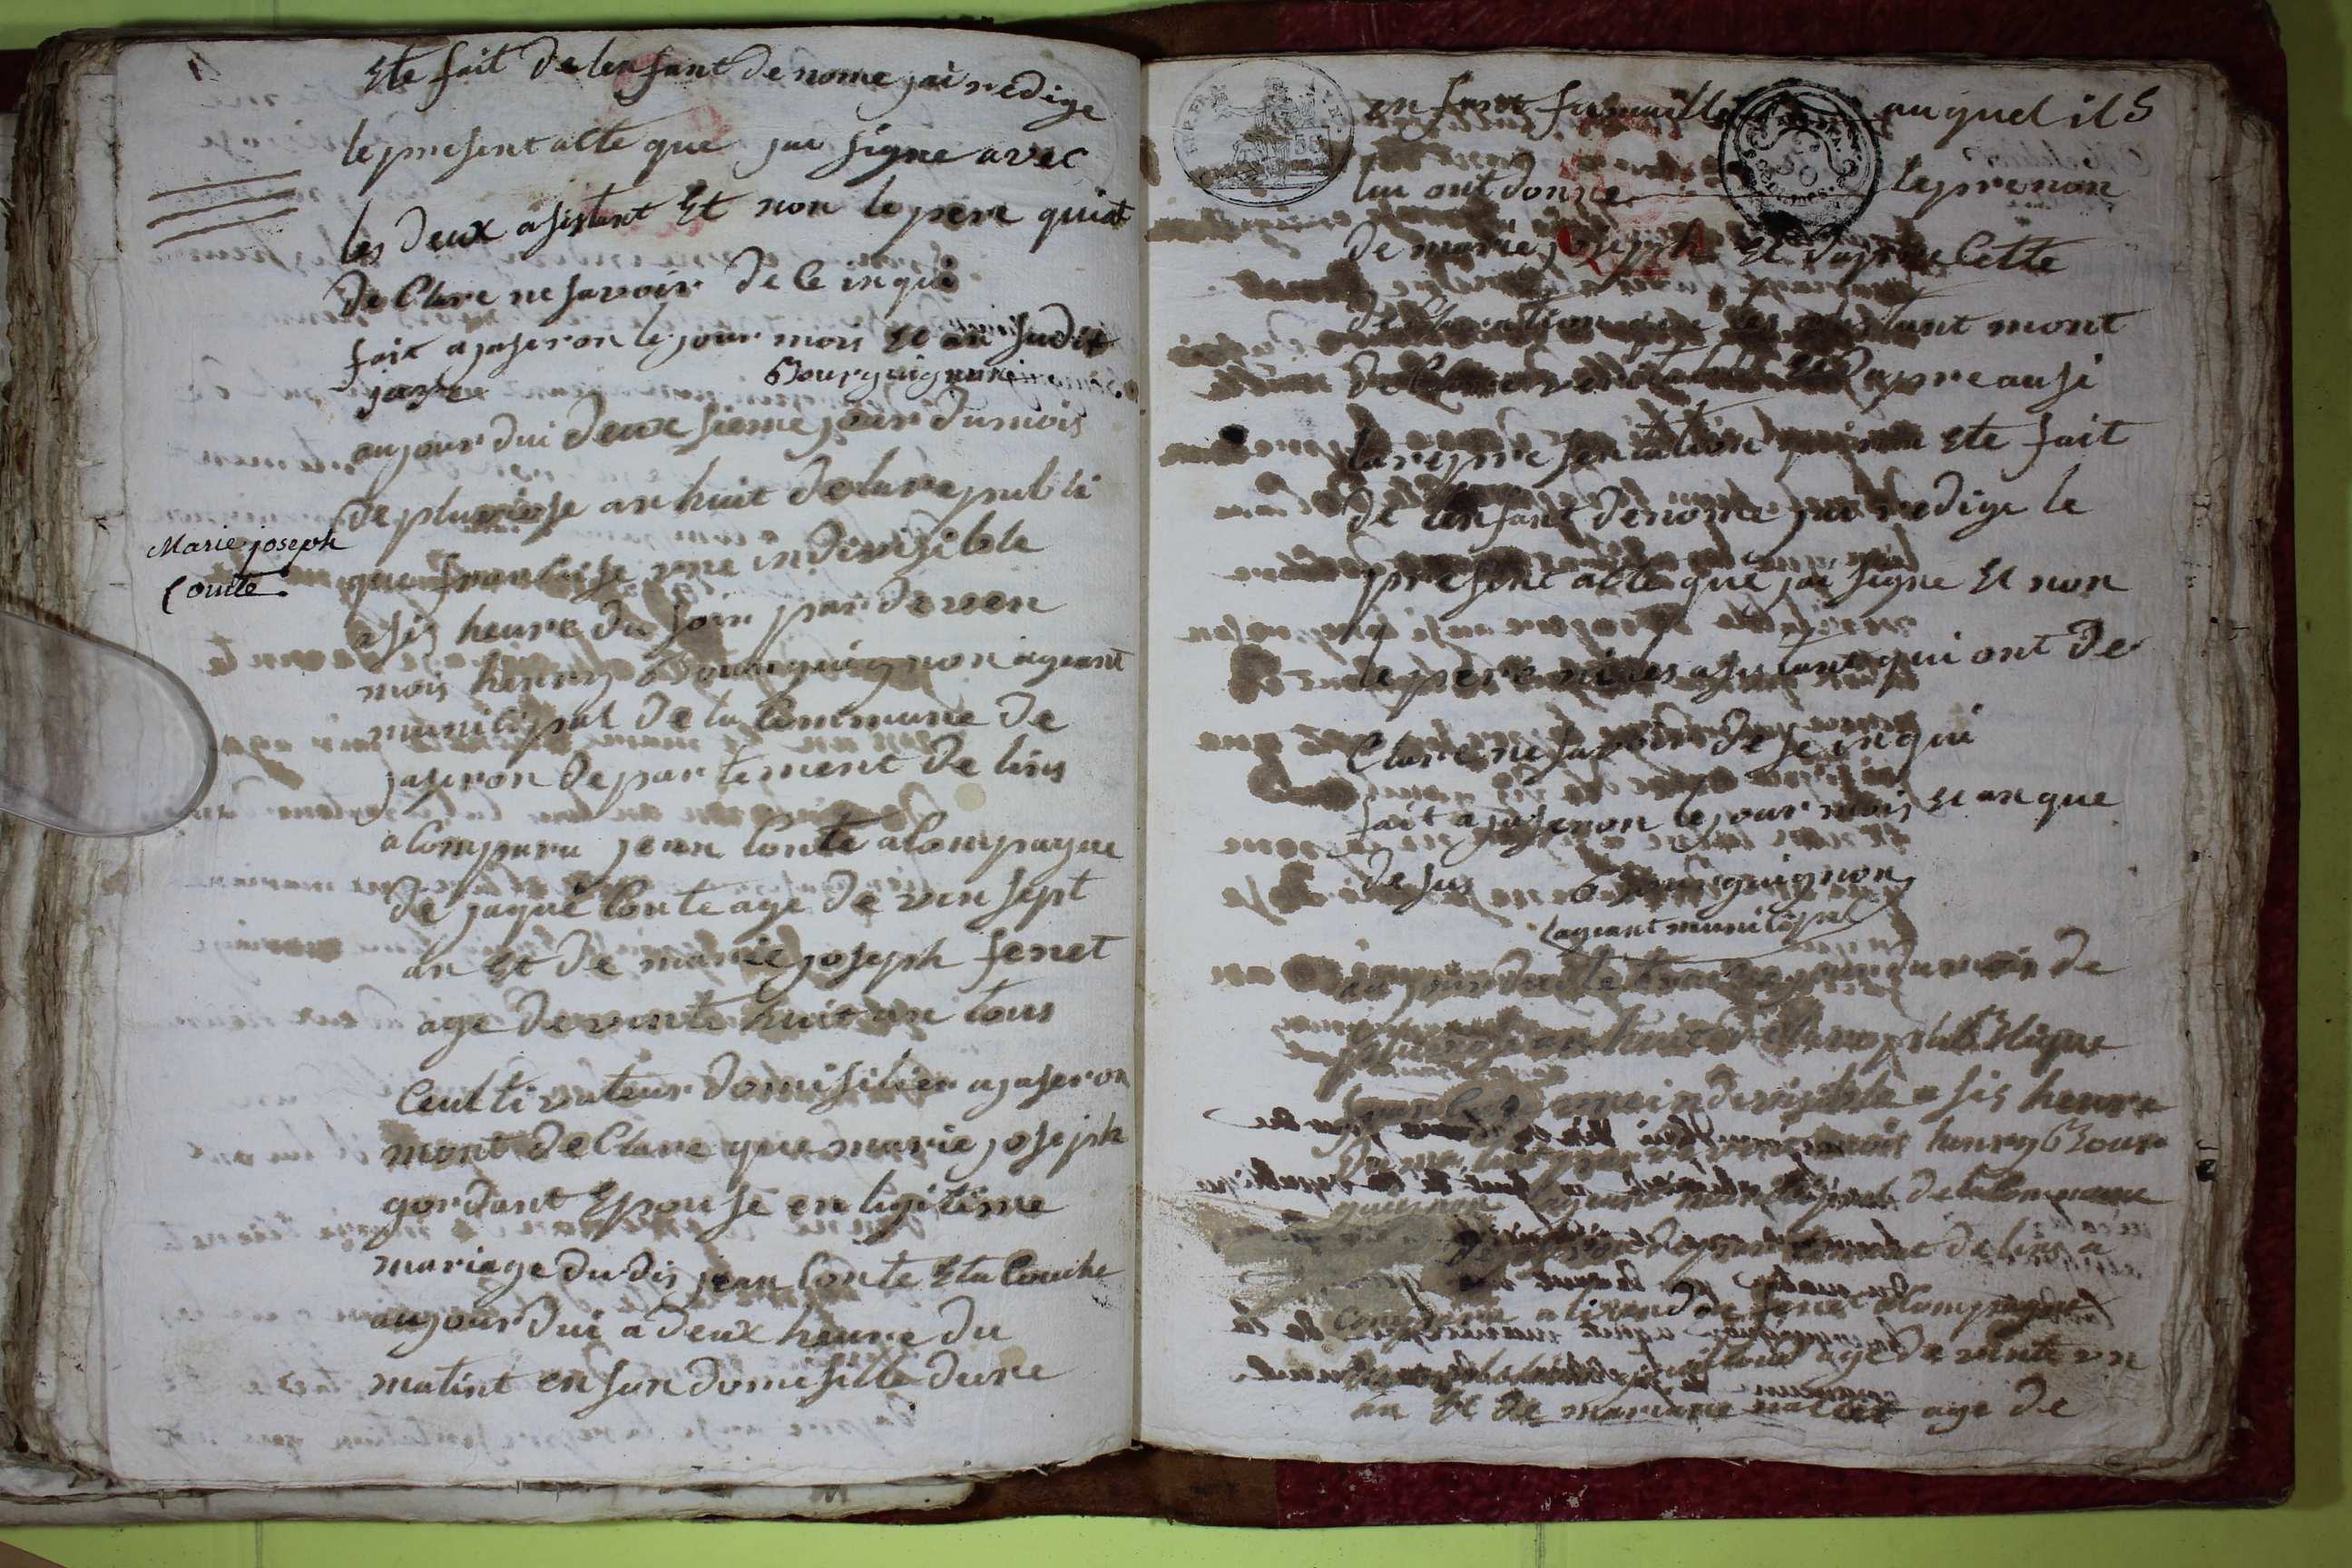 Ete fait de lenfant de nome jai redige
le present acte que jai signe avec
les deux asistant Et non le pere qui at
de Clare ne savoir de ce in qui
fait a jaseron le jour mois Et an sudit
jayr Bourguignon
aujourdui deuxsieme jour du mois
de pluviose an huit de la republi
que francaise une indivisible
Marie joseph
Conte
a sis heure du soir par de ven
mois henry Bourguignon ageant
municipal de la Commune de
jaseron departement de lins
a Comparu jean Conte a Compagne
de jaque Conte age de vin sept
an Et de marie joseph ferret
age de vinte huit an tous
Ceultivateur domisilier a jaseron
mont de Clare que marie joseph
gordant Epouse en ligitime
mariage du dis jean Conte Eta Couche
aujourdui a deux heure du
matint en sun domisille dune
enfant famille auquel ils
lui ont donne le prenon
de marie joseph Et dapre Cette
declaration que les asistant mont
de Clare veritable Et dapre ausi
la representation qui ma Ete fait
de lenfant denome jai redige le
present acte que jai signe Et non
le pere ni les asistant qui ont de
Clare ne savoir de se in qui
fait a jaseron le jour mois Et an que
desus Bourguignon
lageant municipal
aujourdui le traize jour du mois de
pluviose an huit de la republique
une indivisible a sis heure
par de ven mois henry Bour
guignon ageant municipal de la Commune
de jaseron departement de lins a
Comparu alixandre feret a Compagne
age de vinte un
an Et de mariane age de